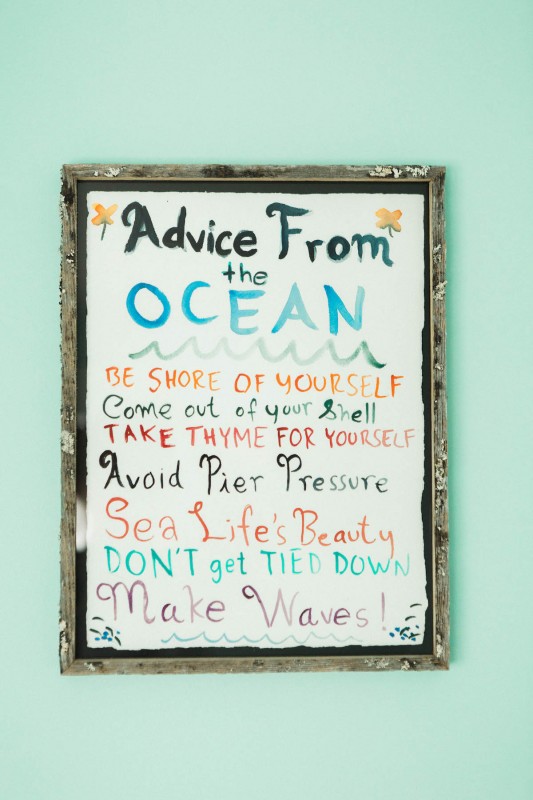 Advice From
the
OCEAN
BE SHORE OF YOURSELF
Come out of your Shell
TAKE THYME FOR YOURSELF
Avoid Pier Pressure
Sea Life's Beauty
DON'T get TIED DOWN
Make Waves!